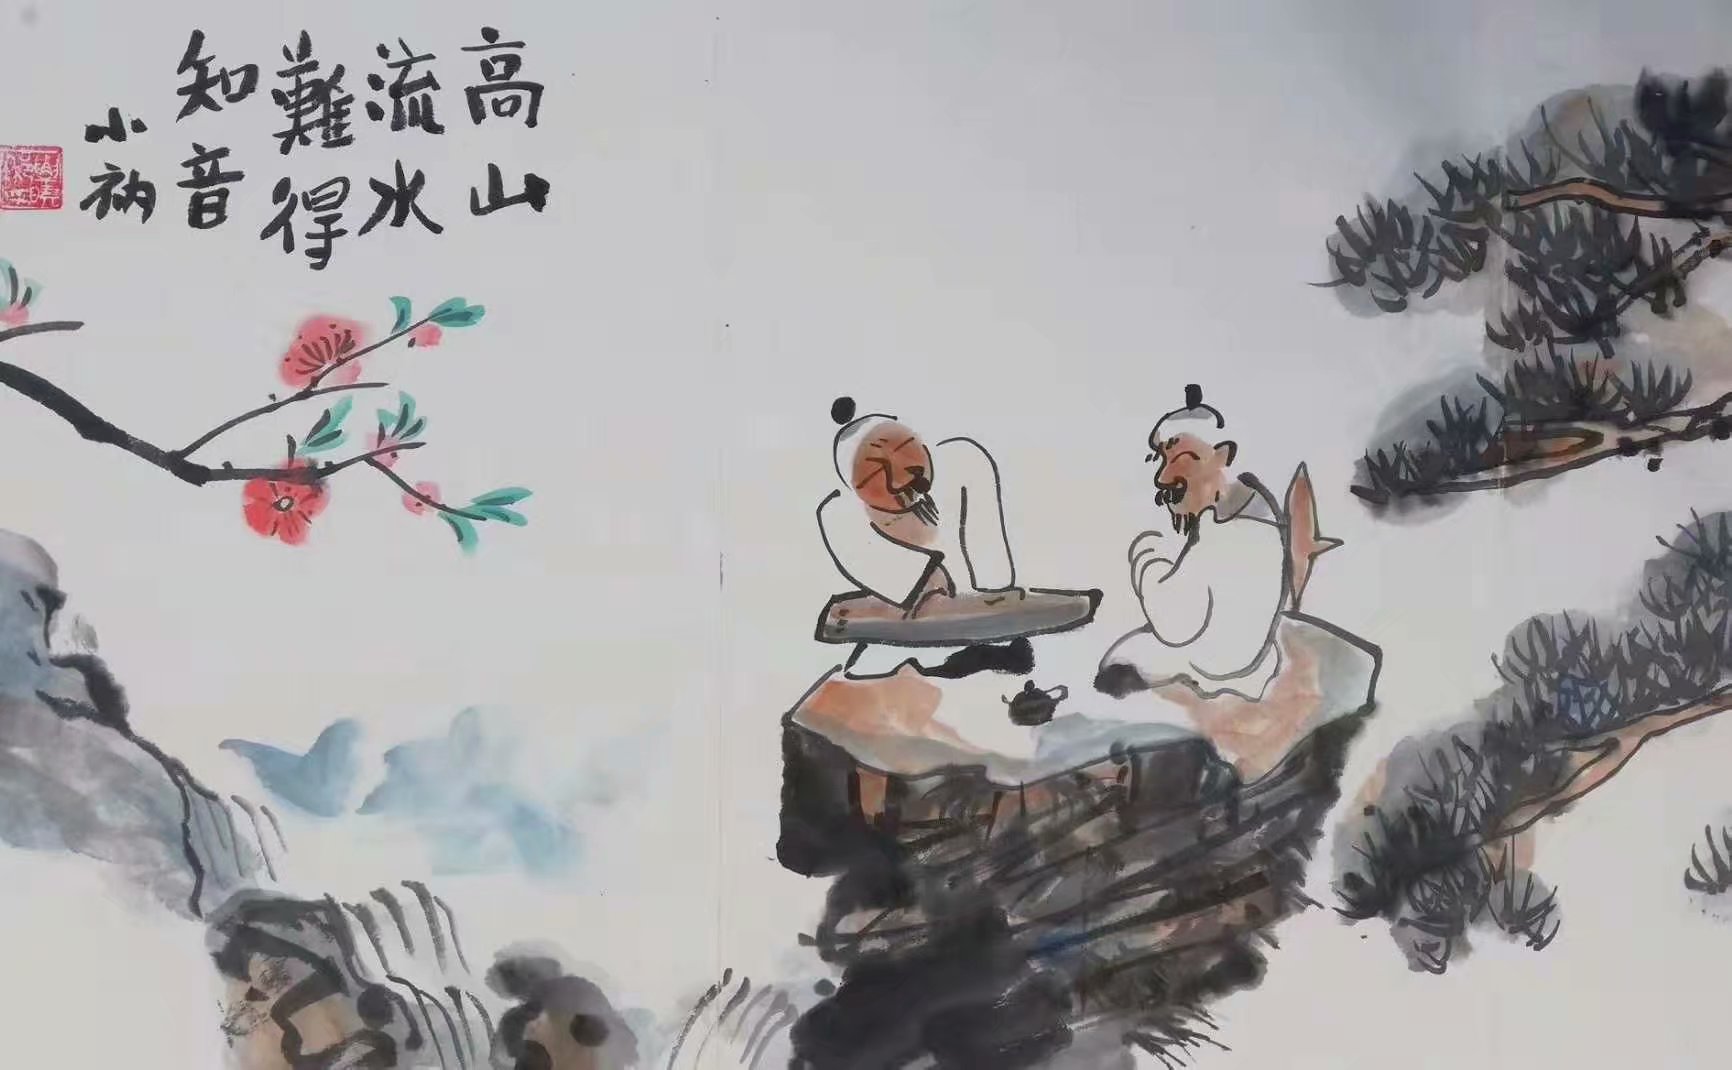 高山
流水
難得
知音
小衲